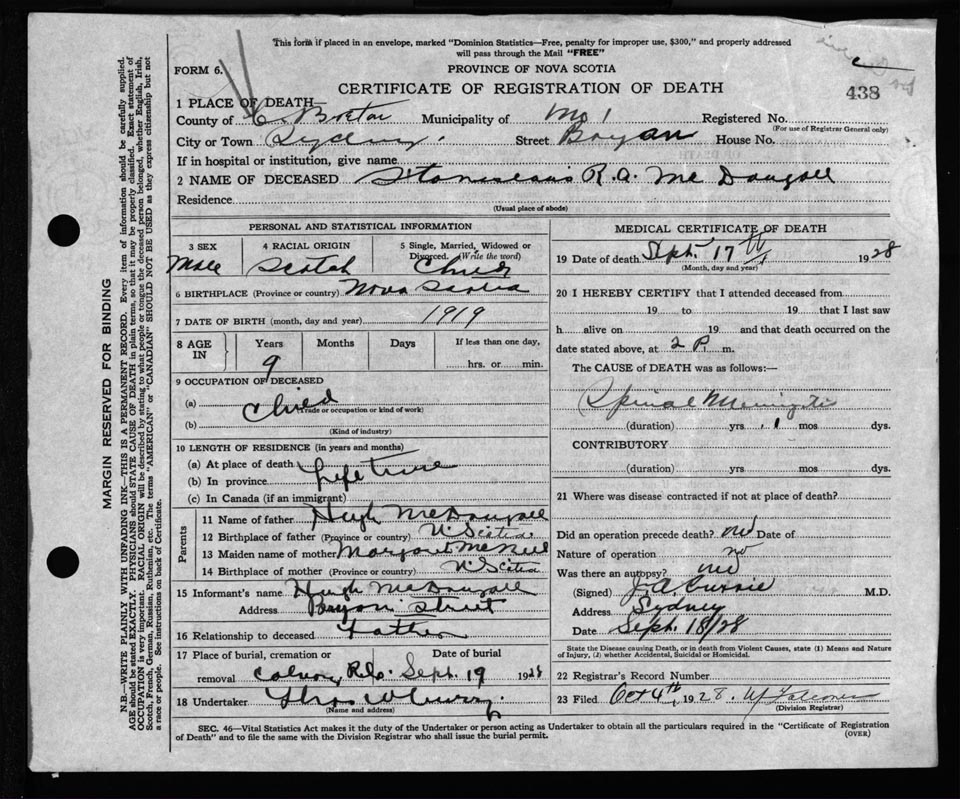 This form if placed in an envelope, marked "Dominion Statistics—Free, penalty for improper use, $300," and properly addressed
will pass through the Mail "FREE"
FORM 6.
PROVINCE OF NOVA SCOTIA
CERTIFICATE OF REGISTRATION OF DEATH
438
1 PLACE OF DEATH
County of C. Breton Municipality of Registered No.
(For use of Registrar General only)
City or Town Sydney Street Bryan House No.
If in hospital or institution, give name
2 NAME OF DECEASED Stanislaus R. A. McDougall
Residence
(Usual place of abode)
PERSONAL AND STATISTICAL INFORMATION
3 SEX 4 RACIAL ORIGIN 5 Single, Married, Widowed or
Divorced. (Write the word)
Male Scotch Child
6 BIRTHPLACE (Province or country) Nova Scotia
7 DATE OF BIRTH (month, day and year) 1919
8 AGE IN Years Months Days If less than one day,
9 hrs. or min.
9 OCCUPATION OF DECEASED
(a) Child
(Trade or occupation or kind of work)
(b)
(Kind of industry)
10 LENGTH OF RESIDENCE (in years and months)
(a) At place of death Life time
(b) In province
(c) In Canada (if an immigrant)
Parents
11 Name of father Hugh McDougall
12 Birthplace of father (Province or country) N. Scotia
13 Maiden name of mother Margaret McNeil
14 Birthplace of mother (Province or country) N. Scotia
15 Informant's name Hugh McDougall
Address Bryan Street
16 Relationship to deceased Father
17 Place of burial, cremation or Date of burial
removal Calvary Sept. 19 1928
18 Undertaker
(Name and address)
MEDICAL CERTIFICATE OF DEATH
19 Date of death Sept. 17th 1928
(Month, day and year)
20 I HEREBY CERTIFY that I attended deceased from
19 to 19 that I last saw
h alive on 19 and that death occurred on
date stated above, at 2 P. m.
The CAUSE of DEATH was as follows:—
Spinal Meningitis
(duration) yrs 1 mos dys.
CONTRIBUTORY
(duration) yrs mos dys.
21 Where was disease contracted if not at place of death?
Did an operation precede death? no Date of
Nature of operation no
Was there an autopsy? no
(Signed) J. A. Currie M.D.
Address Sydney
Date Sept. 18/28
State the Disease causing Death, or in death from Violent Causes, state (1) Means and Nature
of Injury, (2) whether Accidental, Suicidal or Homicidal.
22 Registrar's Record Number
23 Filed Oct 4th, 1928. Falconer
(Division Registrar)
SEC. 46—Vital Statistics Act makes it the duty of the Undertaker or person acting as Undertaker to obtain all the particulars required in the "Certificate of Registration
of Death" and to file the same with the Division Registrar who shall issue the burial permit.
(OVER)
MARGIN RESERVED FOR BINDING
N.B.—WRITE PLAINLY WITH UNFADING INK—THIS IS A PERMANENT RECORD. Every item of information should be carefully supplied.
AGE should be stated EXACTLY. PHYSICIANS should STATE CAUSE OF DEATH in plain terms, so that it may be properly classified. Exact statement of
OCCUPATION is very important. RACIAL ORIGIN will be described by stating to what people or tongue the deceased person belonged, whether English, Irish,
Scotch, French, German, Russian, Ruthenian, etc. The terms "AMERICAN" or "CANADIAN" SHOULD NOT BE USED as they express citizenship but not
a race or people. See instructions on back of Certificate.